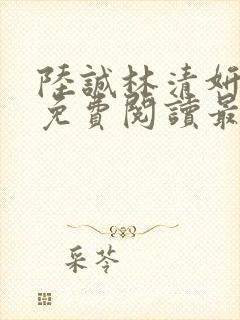 陸誠林清妍
免費閱讀最
采苓